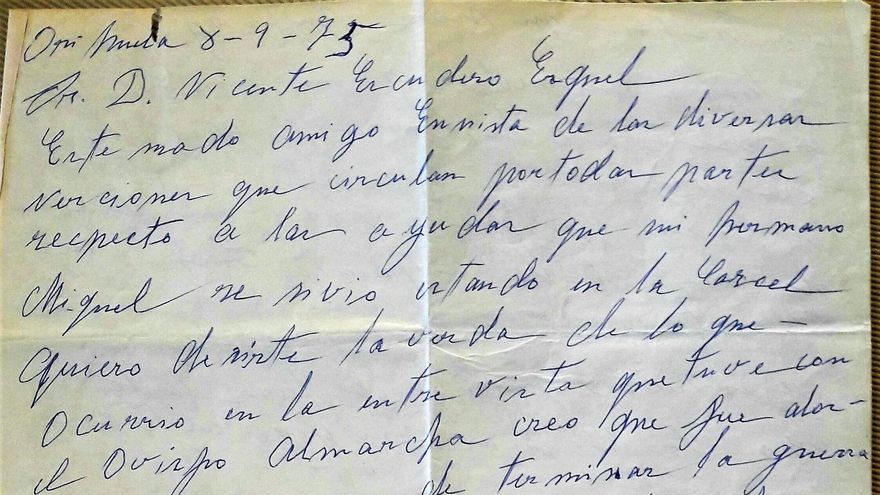 Orihuela 8-9-75
Sr. D. Vicente Escudero Esquel
Estemado amigo Envista de las diversas
verciones que circulan portodas partes
respecto a las ayudas que mi hermano
Miguel se sivio estando en la Carcel
quiero desirte la verda de lo que-
Ocurrio en la entre vista quetuve con
el Ovispo Almarcha creo que fue alos-
de terminar la guerra